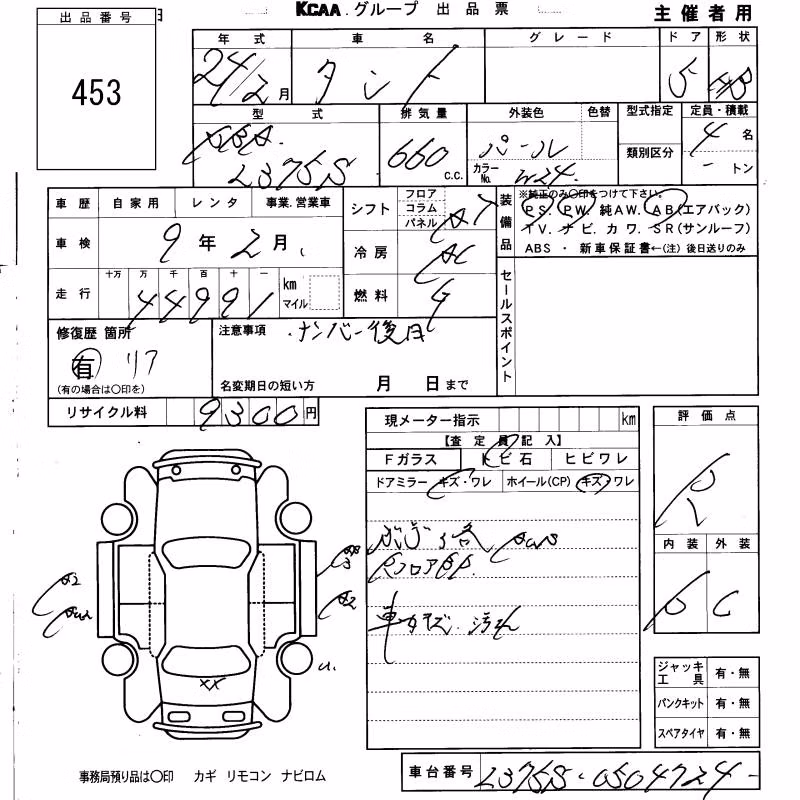 出品番号
453
KCAA.グループ 出品票
主催者用
年式 車名 グレード ドア 形状
24/2月 タント 5 HB
型式 排気量 外装色 色替 型式指定 定員・積載
L375S 660 c.c. パール 4名
カラーNo. W24 類別区分 トン
車歴 自家用 レンタ 事業.営業車
シフト フロア コラム パネル AT
車検 9年2月
冷房 AC
走行 十万 万 千 百 十 一
44991 km マイル
燃料 G
装備品
※純正のみ〇印をつけて下さい。
PS. PW. 純AW. AB(エアバック)
TV. ナビ. カワ. SR(サンルーフ)
ABS ・ 新車保証書←(注) 後日送りのみ
セールスポイント
修復歴 箇所
有 リア
(有の場合は〇印を)
注意事項
・ナンバー後日
名変期日の短い方 月 日まで
リサイクル料 9300円
現メーター指示 km
【査定員記入】
Fガラス トビ石 ヒビワレ
ドアミラー キズ・ワレ ホイール(CP) キズ・ワレ
評価点
R
内装 外装
D C
A2
A2
U.
XX
ジャッキ工具 有・無
パンクキット 有・無
スペアタイヤ 有・無
事務局預り品は〇印 カギ リモコン ナビロム
車台番号 L375S-0504724-